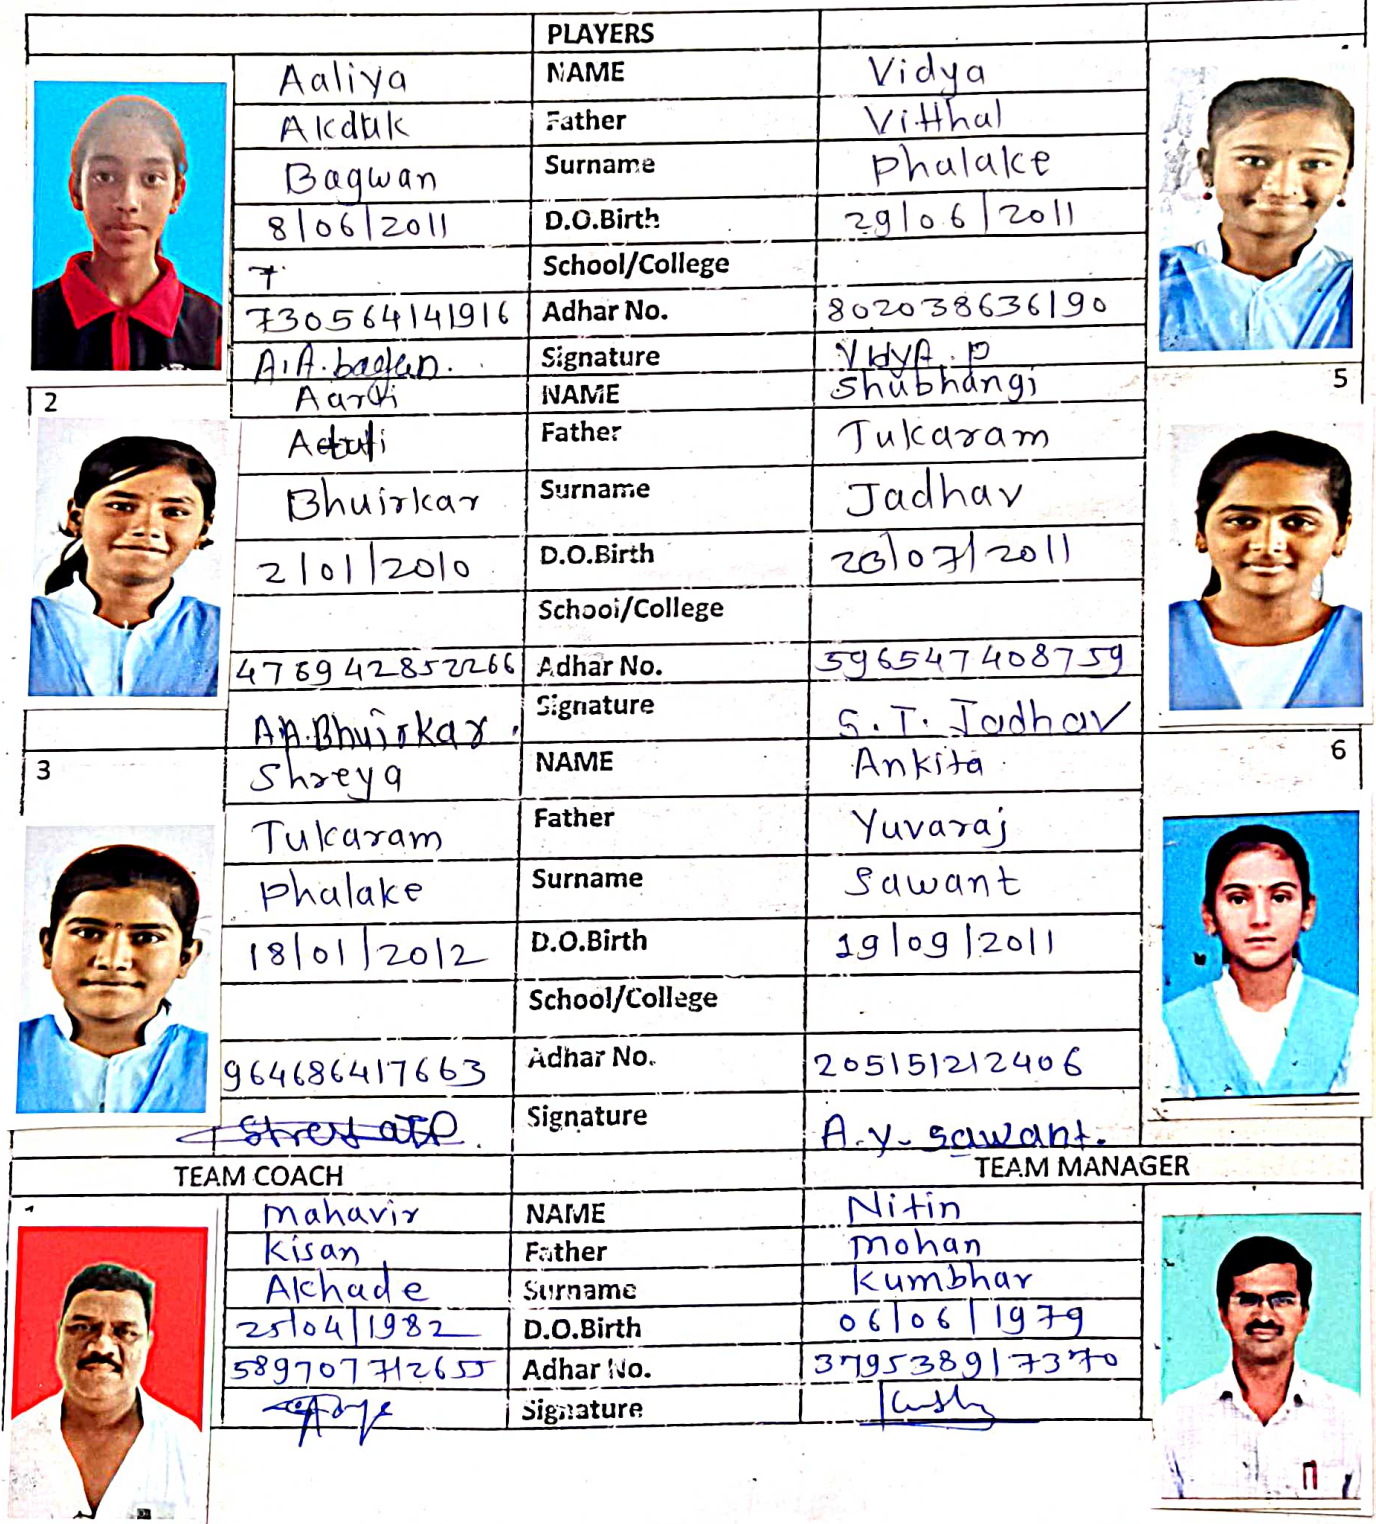 PLAYERS
Aaliya NAME Vidya
Father Vitthal
Bagwan Surname Phalake
8/06/2011 D.O.Birth 29/06/2011
7 School/College
730564141916 Adhar No. 802038636190
Signature VidyA.P
2 Aarti NAME Shubhangi 5
Father Tukaram
Bhuirkar Surname Jadhav
2/01/2010 D.O.Birth /07/2011
School/College
476942852266 Adhar No. 596547408759
A.A.Bhuirkar. Signature S.T.Jadhav
3 Shreya NAME Ankita 6
Tukaram Father Yuvaraj
Phalake Surname Sawant
18/01/2012 D.O.Birth 19/09/2011
School/College
964686417663 Adhar No. 205151212406
Signature A.Y. Sawant.
TEAM COACH TEAM MANAGER
Mahavir NAME Nitin
Kisan Father Mohan
Akhade Surname Kumbhar
25/04/1982 D.O.Birth 06/06/1979
589707712655 Adhar No. 379538917370
Signature